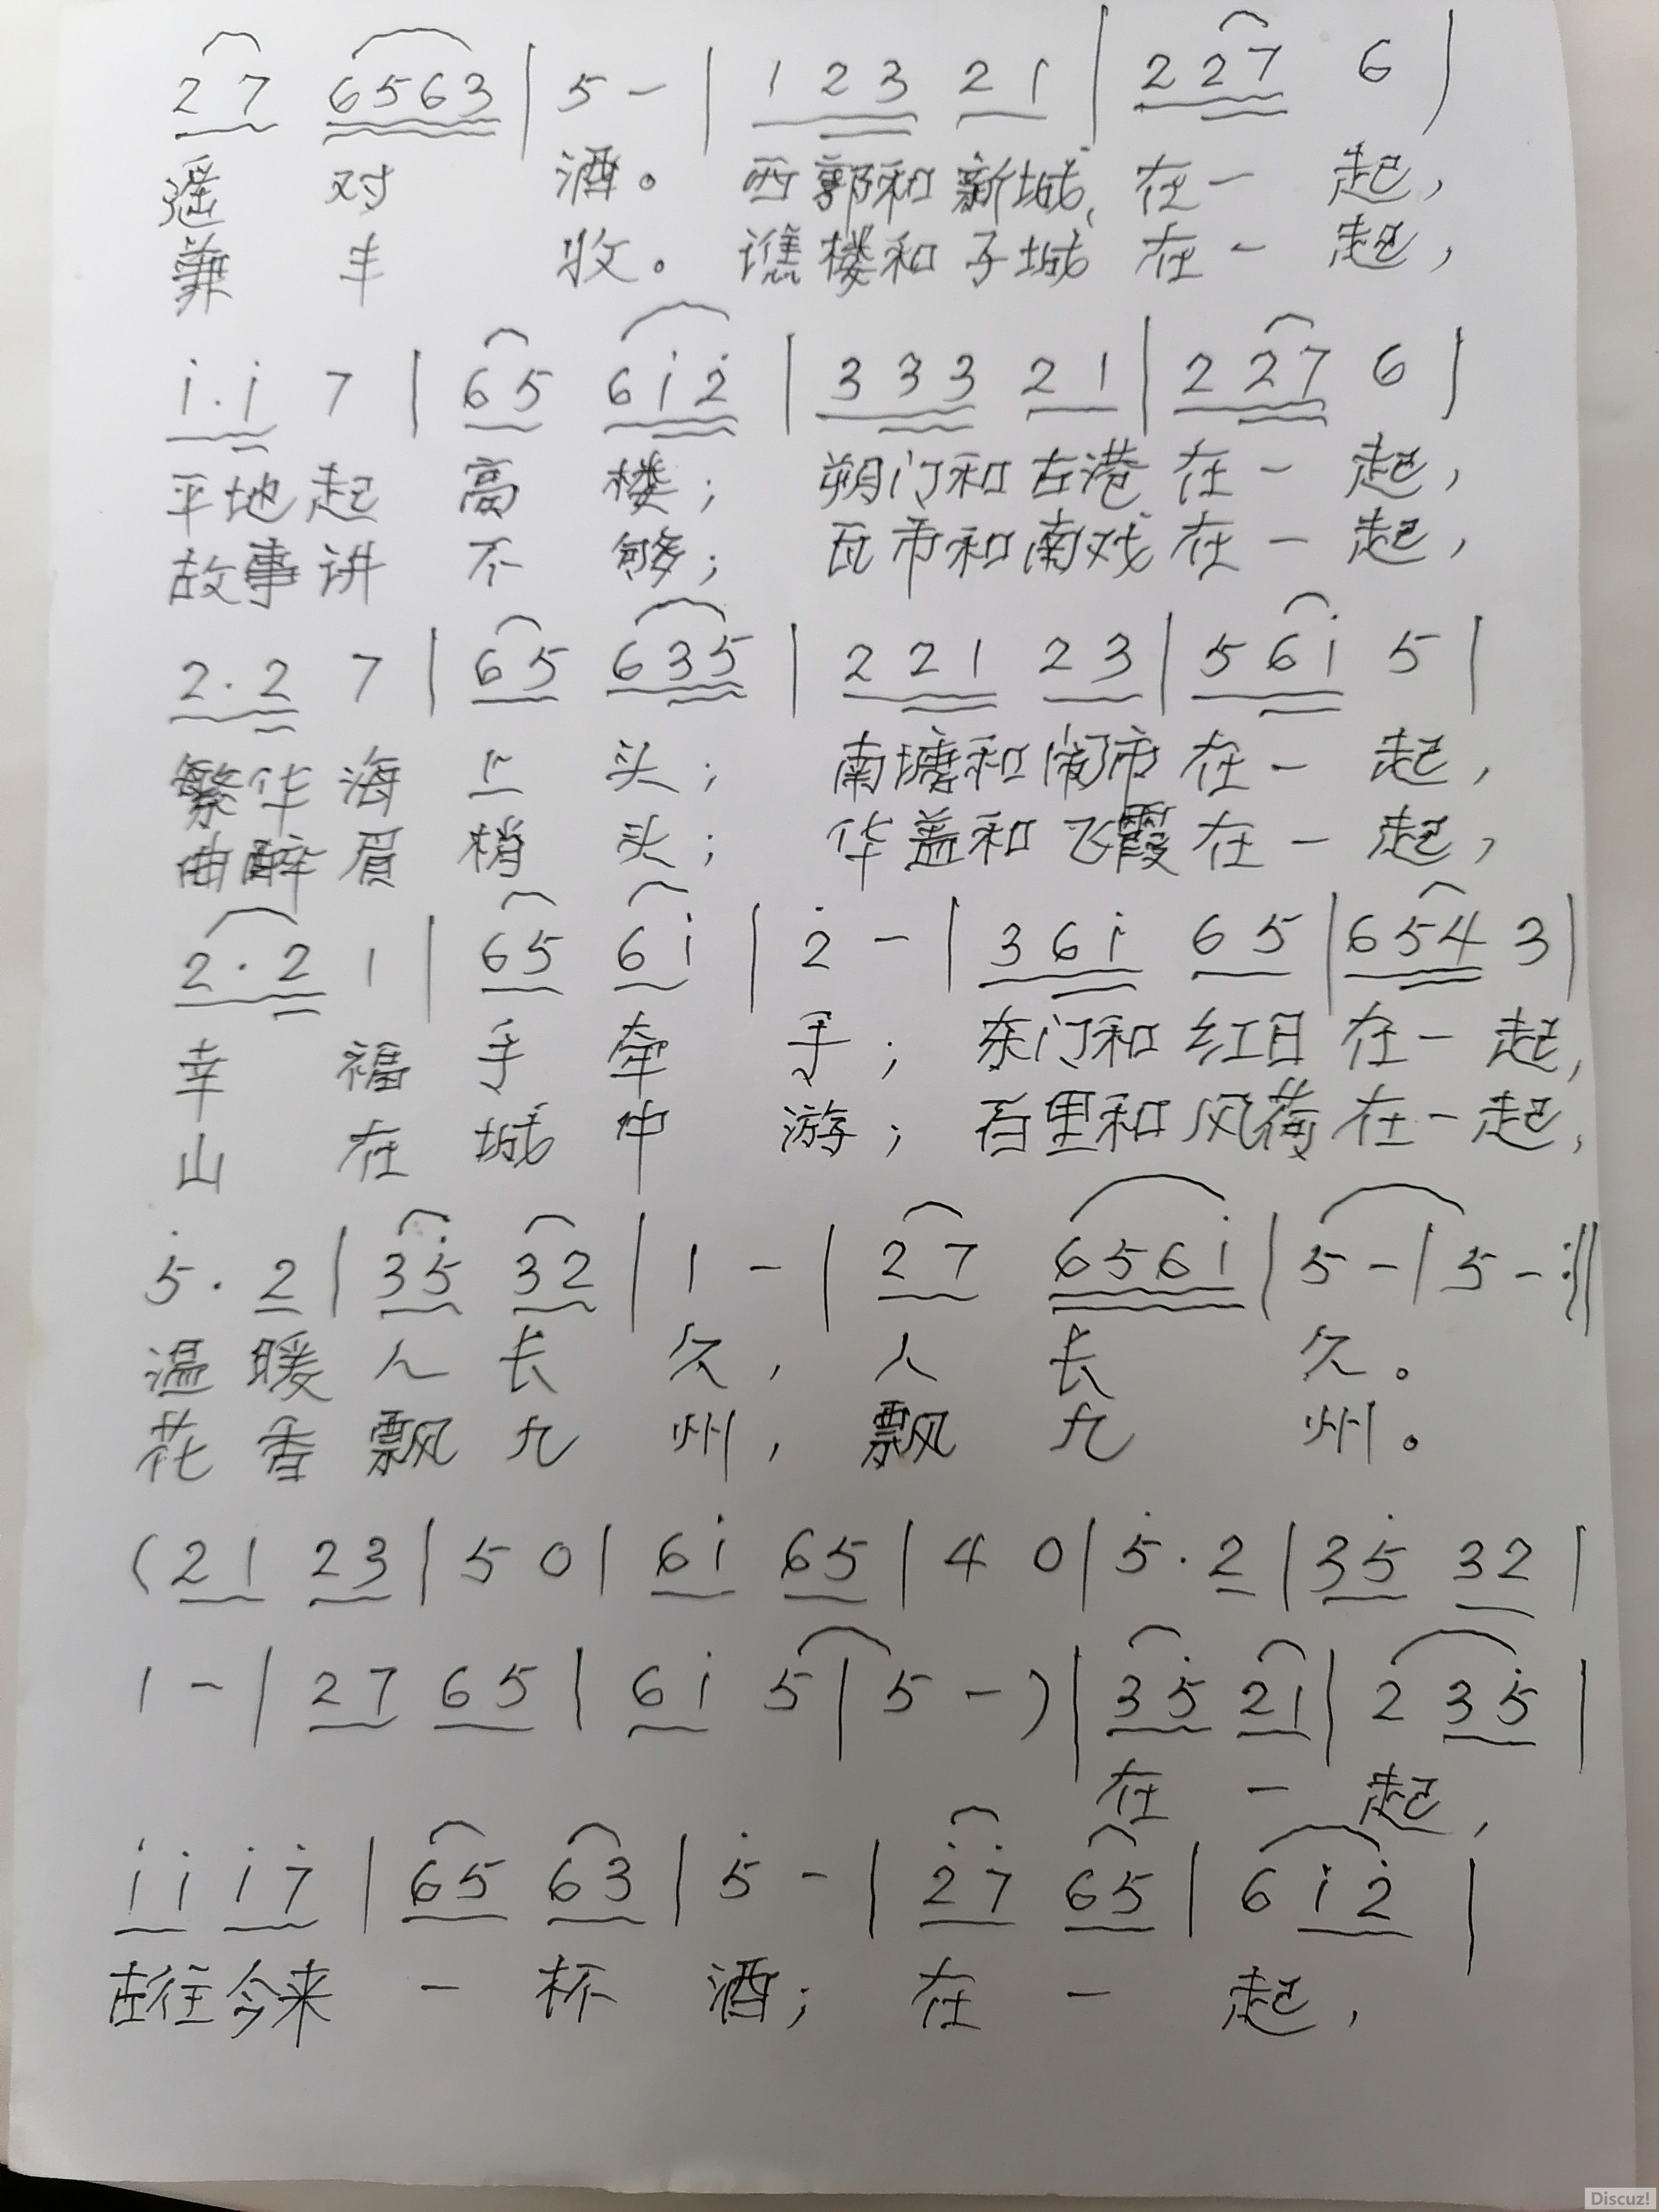 2 7 6 5 6 3 | 5 - | 1 2 3 2 1 | 2 2 7 6 |
遥 对 酒。 西郭和新城 在一 起，
兼 丰 收。 谯楼和子城 在一 起，
i . i 7 | 6 5 6 i 2̇ | 3 3 3 2 1 | 2 2 7 6 |
平地起 高 楼； 朔门和古港 在一 起，
故事讲 不 够； 瓦市和南戏 在一 起，
2 . 2 7 | 6 5 6 3 5 | 2 2 1 2 3 | 5 6 i 5 |
繁华海 上 头； 南塘和闹市 在一 起，
曲醉眉 梢 头； 华盖和飞霞 在一 起，
2 . 2 1 | 6 5 6 i | 2̇ - | 3 6 i 6 5 | 6 5 4 3 |
幸 福 手 牵 手； 东门和红日 在一 起，
山 在 城 中 游； 百里和风荷 在一起，
5̇ . 2 | 3 5̇ 3 2 | 1 - | 2 7 6 5 6 i | 5 - | 5 - :||
温 暖 人 长 久， 人 长 久。
花 香 飘 九 州， 飘 九 州。
( 2 1 2 3 | 5 0 | 6 i 6 5 | 4 0 | 5̇ . 2 | 3 5̇ 3 2 |
1 - | 2 7 6 5 | 6 i 5 | 5 - ) | 3 5̇ 2 1 | 2 3 5̇ |
在 一 起，
i i i 7̇ | 6 5 6 3 | 5̇ - | 2̇ 7̇ 6 5 | 6 i 2̇ |
古往今来 一 杯 酒； 在 一 起，
Discuz!